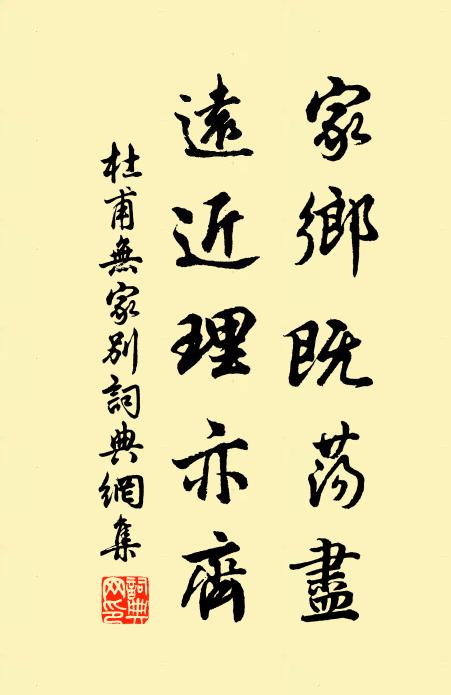 家鄉既荡盡
遠近理亦齊
杜甫無家别詞典網集
詞典網印